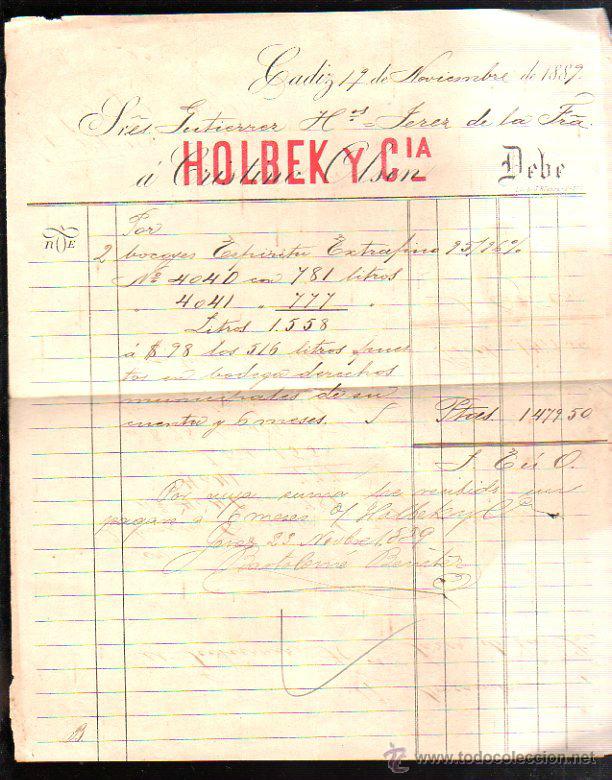 Cadiz 19 de Noviembre de 1889.
Sres. Gutierrez Hos = Jerez de la Fra.
HOLBEK Y CIA
á Cristino Olsen Debe
Por
2 bocoyes Espiritu Extrafino 95/96%
No 4040 con 781 litros
" 4041 " 777 "
Litros 1.558
á $ 98 los 516 litros pues
tos en bodega derechos
municipales de su
cuenta y 6 meses. Ptas. 1479.50
S. E ú O.
Por cuya suma he recibido un
pagaré á 6 meses o/ Holbek y Ca
Jerez 22 Novbre 1889
Bartolomé
todocoleccion
www.todocoleccion.net